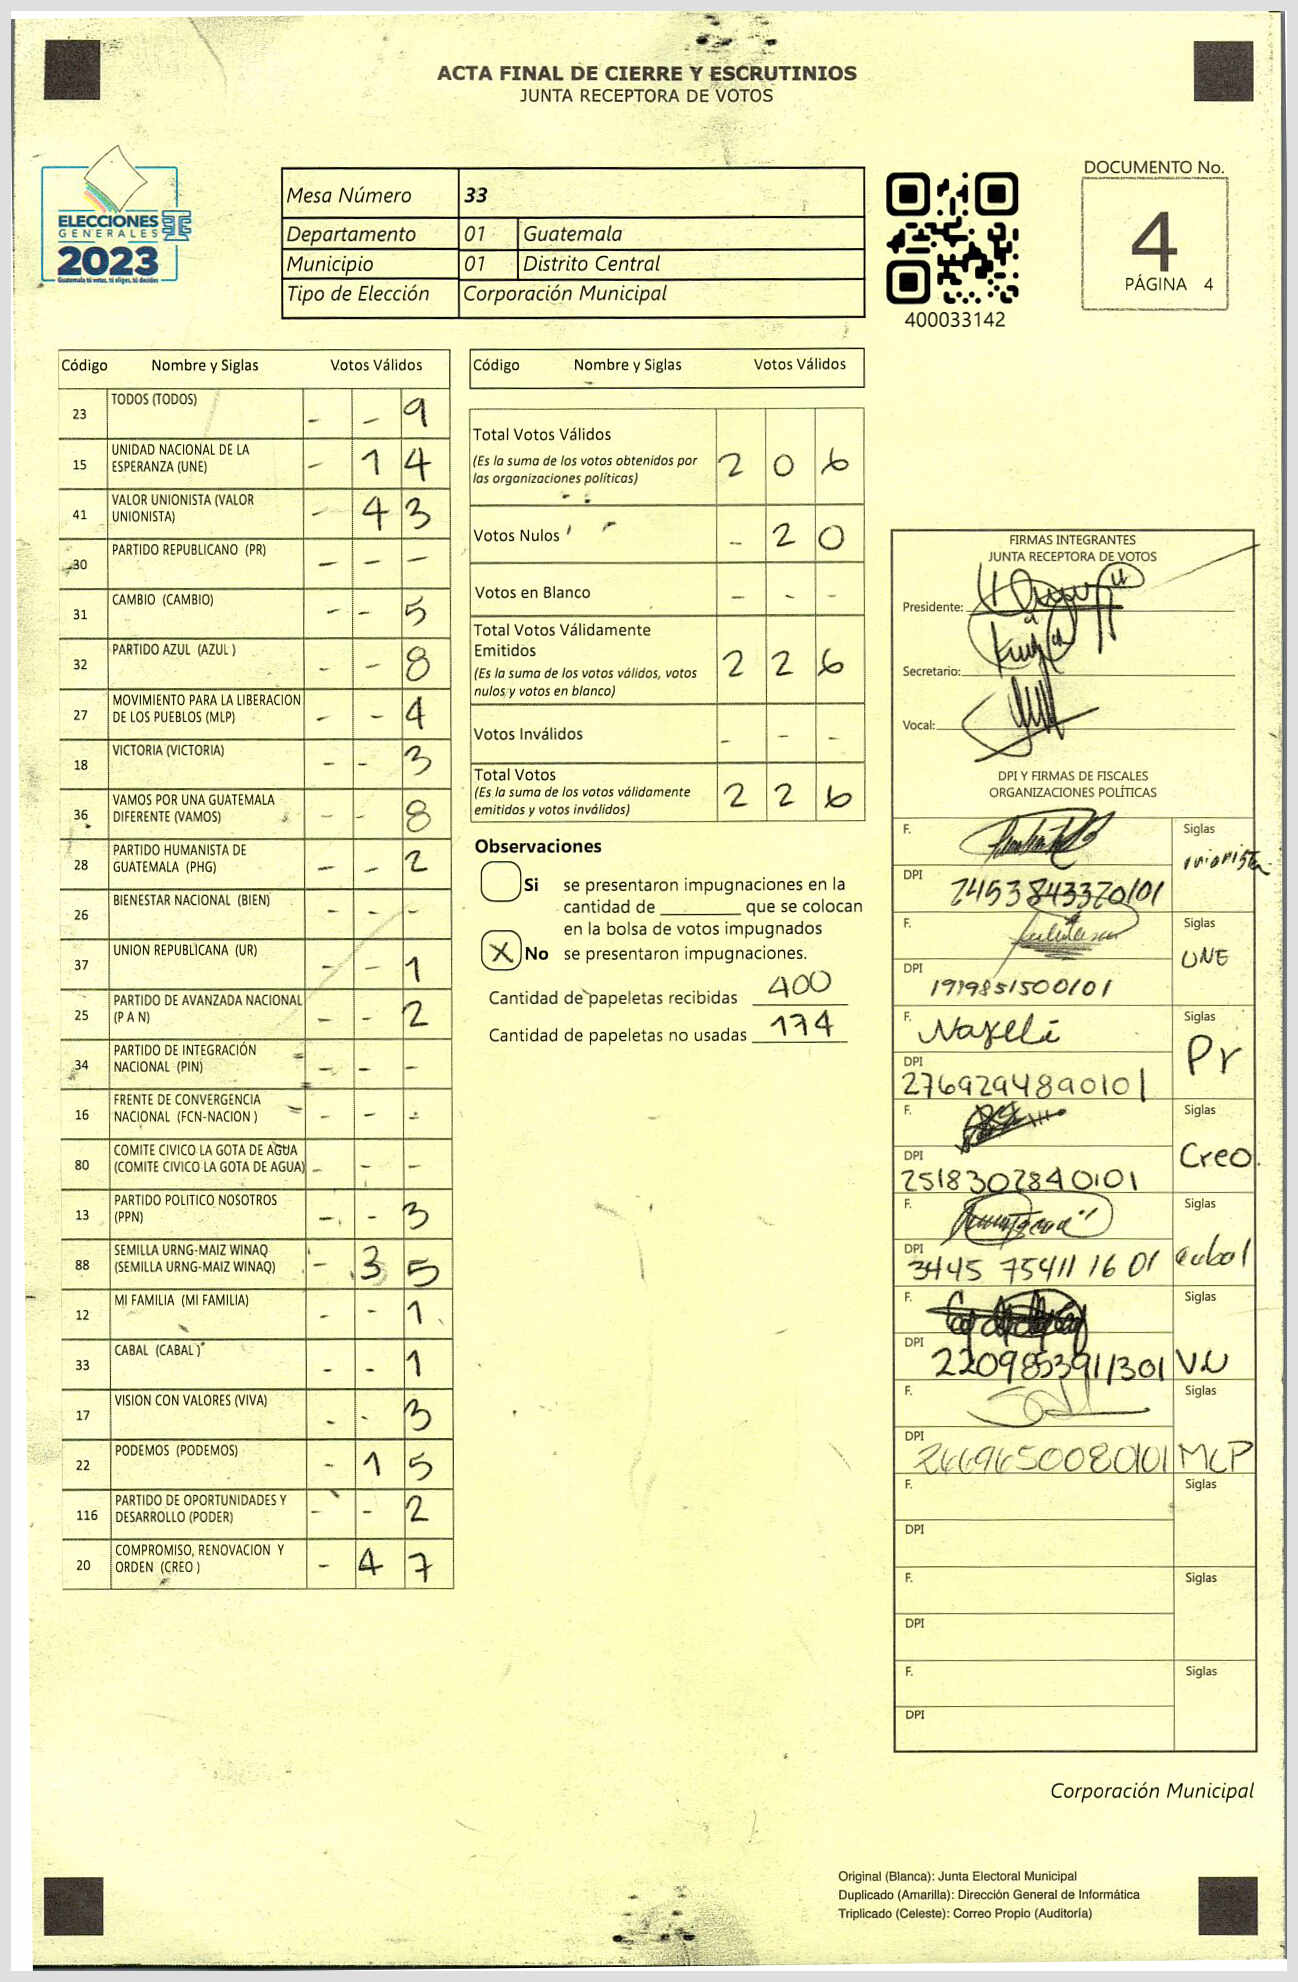 ACTA FINAL DE CIERRE Y ESCRUTINIOS
JUNTA RECEPTORA DE VOTOS
ELECCIONES
GENERALES
2023
Guatemala tú votas, tú eliges, tú decides
Mesa Número 33
Departamento 01 Guatemala
Municipio 01 Distrito Central
Tipo de Elección Corporación Municipal
400033142
DOCUMENTO No.
4
PÁGINA 4
Código Nombre y Siglas Votos Válidos
23 TODOS (TODOS) - - 9
15 UNIDAD NACIONAL DE LA ESPERANZA (UNE) - 1 4
41 VALOR UNIONISTA (VALOR UNIONISTA) - 4 3
30 PARTIDO REPUBLICANO (PR) - - -
31 CAMBIO (CAMBIO) - - 5
32 PARTIDO AZUL (AZUL ) - - 8
27 MOVIMIENTO PARA LA LIBERACION DE LOS PUEBLOS (MLP) - - 4
18 VICTORIA (VICTORIA) - - 3
36 VAMOS POR UNA GUATEMALA DIFERENTE (VAMOS) - - 8
28 PARTIDO HUMANISTA DE GUATEMALA (PHG) - - 2
26 BIENESTAR NACIONAL (BIEN) - - -
37 UNION REPUBLICANA (UR) - - 1
25 PARTIDO DE AVANZADA NACIONAL (P A N) - - 2
34 PARTIDO DE INTEGRACIÓN NACIONAL (PIN) - - -
16 FRENTE DE CONVERGENCIA NACIONAL (FCN-NACION ) - - -
80 COMITE CIVICO LA GOTA DE AGUA (COMITE CIVICO LA GOTA DE AGUA) - - -
13 PARTIDO POLITICO NOSOTROS (PPN) - - 3
88 SEMILLA URNG-MAIZ WINAQ (SEMILLA URNG-MAIZ WINAQ) - 3 5
12 MI FAMILIA (MI FAMILIA) - - 1
33 CABAL (CABAL ) - - 1
17 VISION CON VALORES (VIVA) - - 3
22 PODEMOS (PODEMOS) - 1 5
116 PARTIDO DE OPORTUNIDADES Y DESARROLLO (PODER) - - 2
20 COMPROMISO, RENOVACION Y ORDEN (CREO ) - 4 7
Código Nombre y Siglas Votos Válidos
Total Votos Válidos 2 0 6
(Es la suma de los votos obtenidos por
las organizaciones políticas)
Votos Nulos - 2 0
Votos en Blanco - - -
Total Votos Válidamente
Emitidos 2 2 6
(Es la suma de los votos válidos, votos
nulos y votos en blanco)
Votos Inválidos - - -
Total Votos 2 2 6
(Es la suma de los votos válidamente
emitidos y votos inválidos)
Observaciones
Si se presentaron impugnaciones en la
cantidad de ________ que se colocan
en la bolsa de votos impugnados
X No se presentaron impugnaciones.
Cantidad de papeletas recibidas 400
Cantidad de papeletas no usadas 174
FIRMAS INTEGRANTES
JUNTA RECEPTORA DE VOTOS
Presidente:
Secretario:
Vocal:
DPI Y FIRMAS DE FISCALES
ORGANIZACIONES POLÍTICAS
F. Siglas unionista
DPI 2453843320101
F. Siglas UNE
DPI 1919851500101
F. Siglas Pr
DPI 2769294890101
F. Siglas Creo.
DPI 2518302840101
F. Siglas cabal
DPI 3445 75411 16 01
F. Siglas V.U
DPI 2209853911301
F. Siglas MLP
DPI 2669650080101
F. Siglas
DPI
F. Siglas
DPI
F. Siglas
DPI
Corporación Municipal
Original (Blanca): Junta Electoral Municipal
Duplicado (Amarilla): Dirección General de Informática
Triplicado (Celeste): Correo Propio (Auditoría)